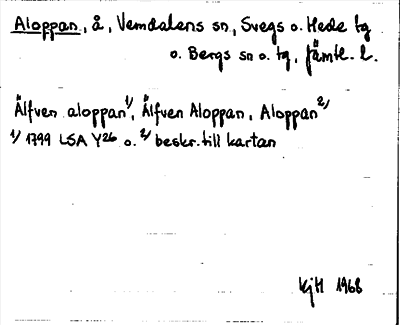 Aloppan, å, Vemdalens sn, Svegs o. Hede tg
o. Bergs sn o. tg, Jämtl. l.
Älfven aloppan 1/, Älfven Aloppan, Aloppan 2/
1/ 1799 LSA Y26 o. 2/ beskr. till kartan
KjH 1968